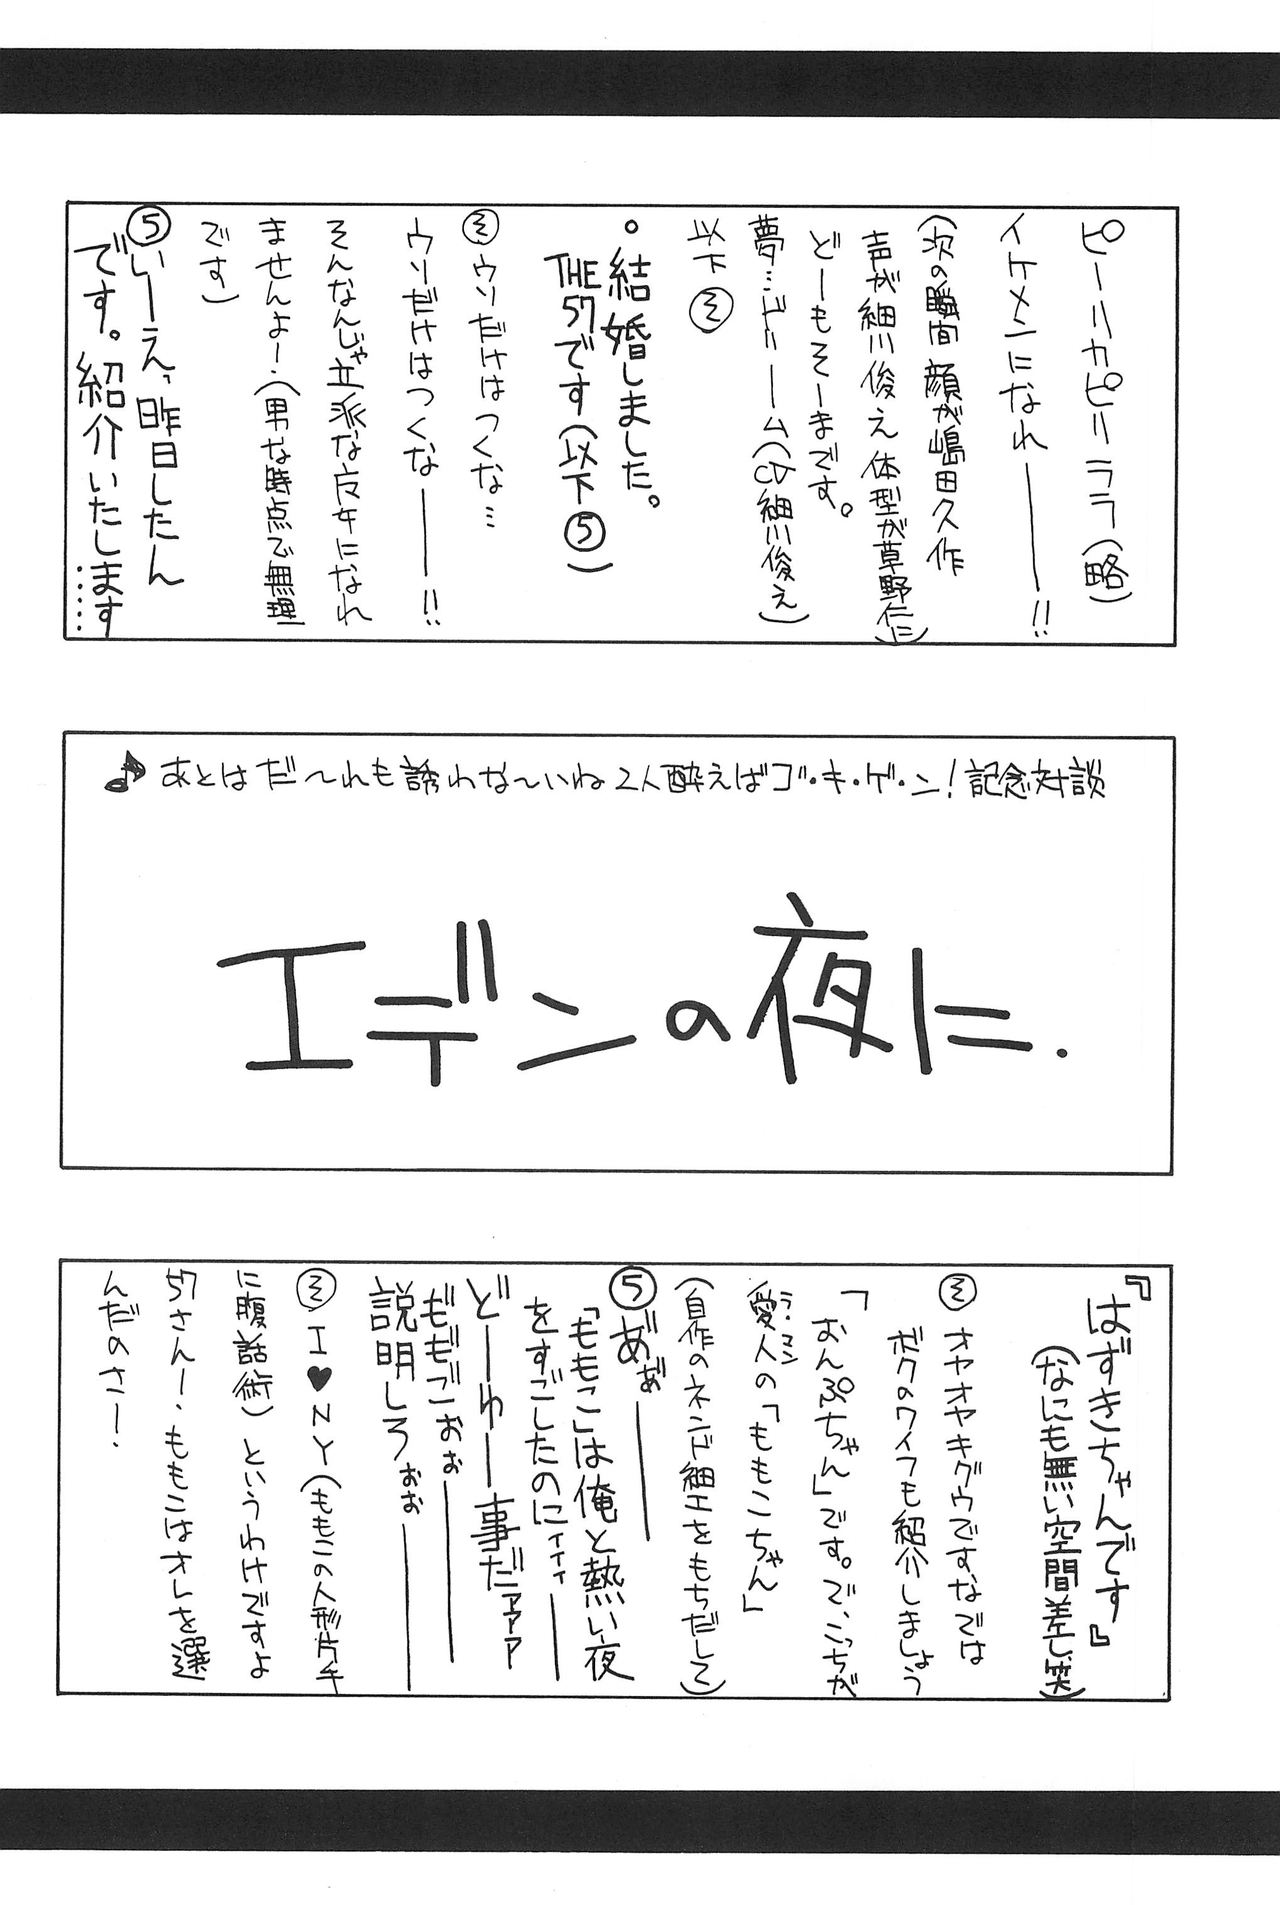 ピーリカピリララ(略)
イケメンになれ――!!
(次の瞬間 顔が嶋田久作
声が細川俊え 体型が草野仁に)
どーもそーまです。
夢…ドリーム(CV細川俊え)
以下そ
。結婚しました。
THE57です(以下5)
そウソだけはつくな…
ウソだけはつくな――!!
そんなんじゃ立派な女になれ
ませんよー.(男な時点で無理
です)
5いーえ、昨日したん
です。紹介いたします……
♪あとはだ〜れも誘わな〜いね2人酔えばゴ・キ・ゲ・ン!記念対談
エデンの夜に.
『はずきちゃんです』
(なにも無い空間差し笑)
そオヤオヤキグウですなでは
ボクのワイフも紹介しましょう
「おんぷちゃん」です。で、こっちが
愛人の「ももこちゃん」
ラ・マン
(自作のネンド細工をもちだして)
5あ゛ぁ゛――
「ももこ」は俺と熱い夜
をすごしたのにィィィ――
どーゆー事だァァァ
ももごぉぉ――
説明しろぉぉ――
そI♥NY(ももこの人形片手
に腹話術)というわけですよ
57さんー、ももこはオレを選
んだのさー.